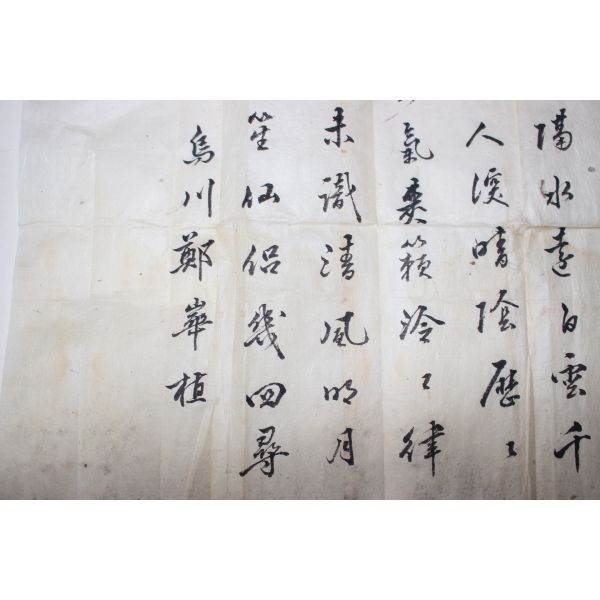 隔水遠白雲千
人深暗陰歷〻
氣爽籟泠〻律
未識清風明月
笙仙侶幾回尋
烏川鄭崋植